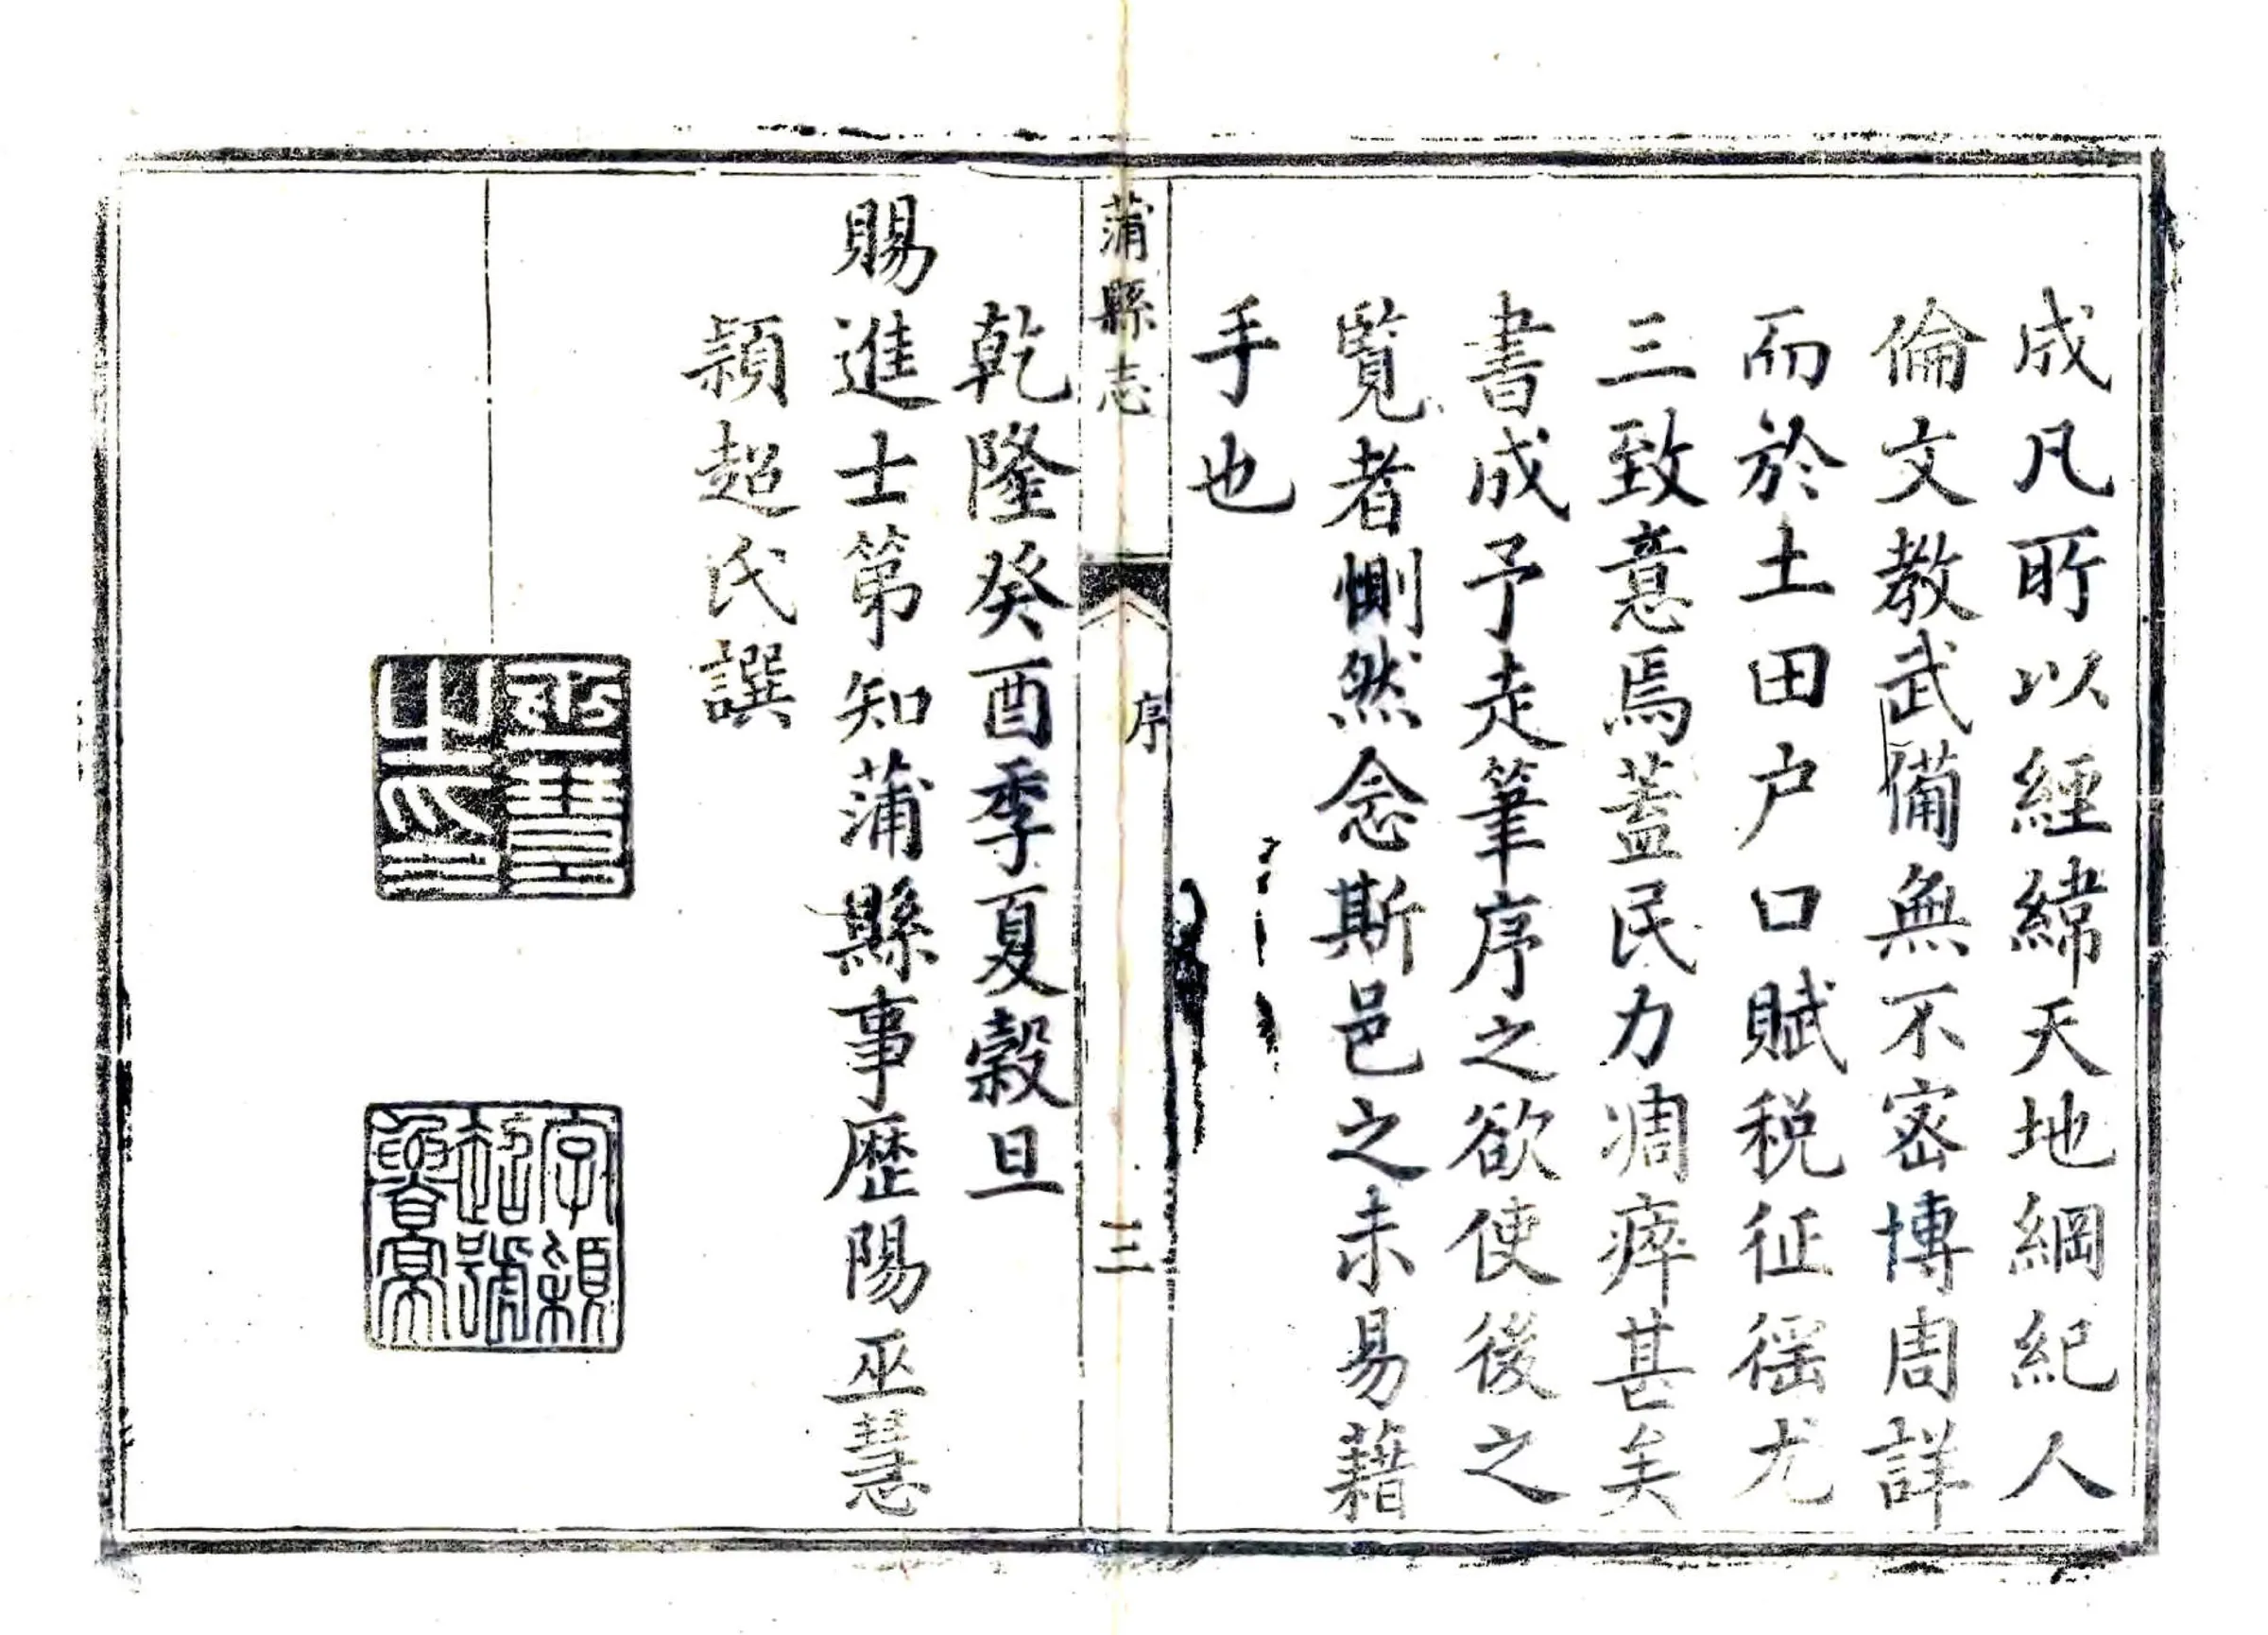 成凡所以經緯天地綱紀人
倫文教武備無不宻博周詳
而於土田户口賦税征徭尤
三致意焉蓋民力凋瘁甚矣
書成予走筆序之欲使後之
覧者惻然念斯邑之未易藉
手也
蒲縣志
序
三
乾隆癸酉季夏穀旦
賜進士第知蒲縣事歴陽巫慧
頴超氏譔
巫慧
之印
字頴
超號